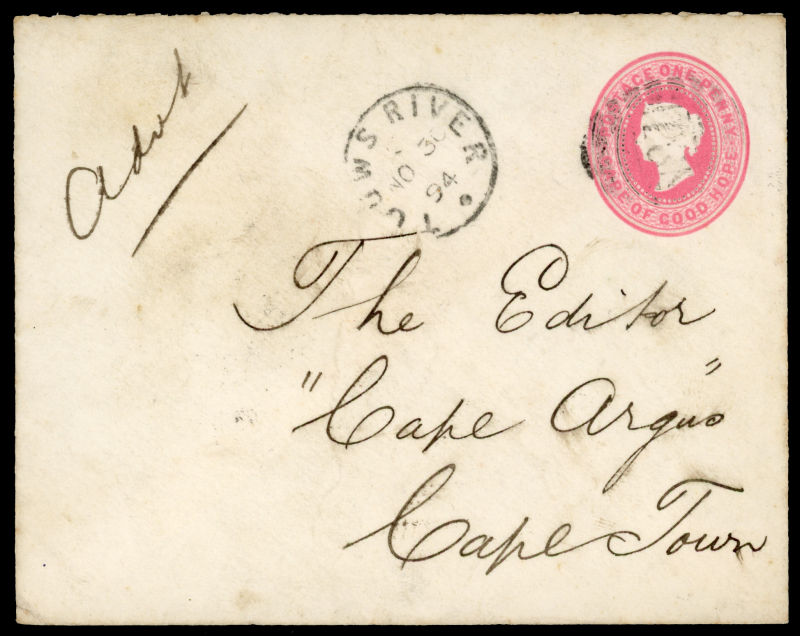 Advt
TOUWS RIVER
NO 30
94
POSTAGE ONE PENNY
CAPE OF GOOD HOPE
The Editor
"Cape Argus"
Cape Town